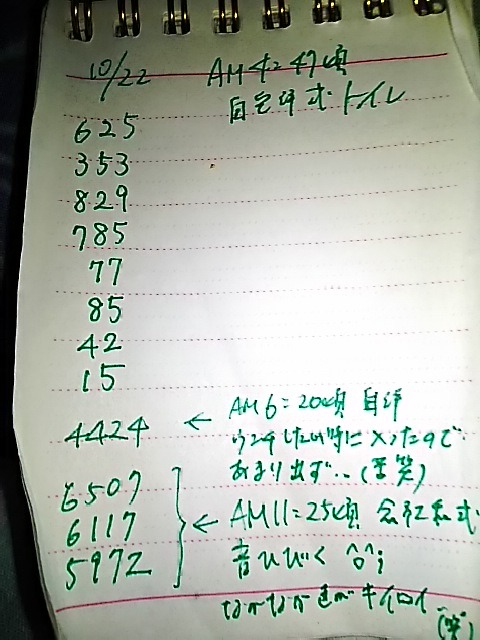 10/22 AM4:47頃
自宅洋式トイレ
625
353
829
785
77
85
42
15
4424 ← AM6:20頃 自洋
ウンチしたい時に
あまり出ず‥(苦笑)
6507
6117 ← AM11:25頃 会社 式
5972 音ひびく ^o^;
なかなか色がキイロイ (笑)